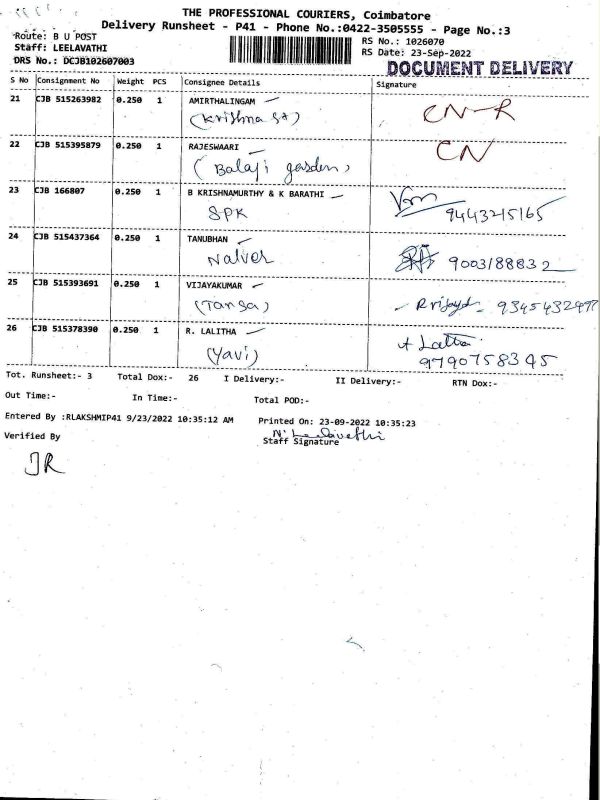 THE PROFESSIONAL COURIERS, Coimbatore
Delivery Runsheet - P41 - Phone No.:0422-3505555 - Page No.:3
Route: B U POST
RS No.: 1026070
Staff: LEELAVATHI
RS Date: 23-Sep-2022
DRS No.: DCJB102607003
DOCUMENT DELIVERY
S No Consignment No Weight PCS Consignee Details Signature
21 CJB 515263982 0.250 1 AMIRTHALINGAM
(Krishna st) CN-R
22 CJB 515395879 0.250 1 RAJESWAARI CN
(Balaji garden)
23 CJB 166807 0.250 1 B KRISHNAMURTHY & K BARATHI
SPK 9443215165
24 CJB 515437364 0.250 1 TANUBHAN
Nalver 9003188832
25 CJB 515393691 0.250 1 VIJAYAKUMAR
(Tansa)
26 CJB 515378390 0.250 1 R. LALITHA
(Yavi) 9790758345
Tot. Runsheet:- 3 Total Dox:- 26 I Delivery:- II Delivery:- RTN Dox:-
Out Time:- In Time:- Total POD:-
Entered By :RLAKSHMIP41 9/23/2022 10:35:12 AM Printed On: 23-09-2022 10:35:23
N. Leelavathi
Verified By Staff Signature
JR